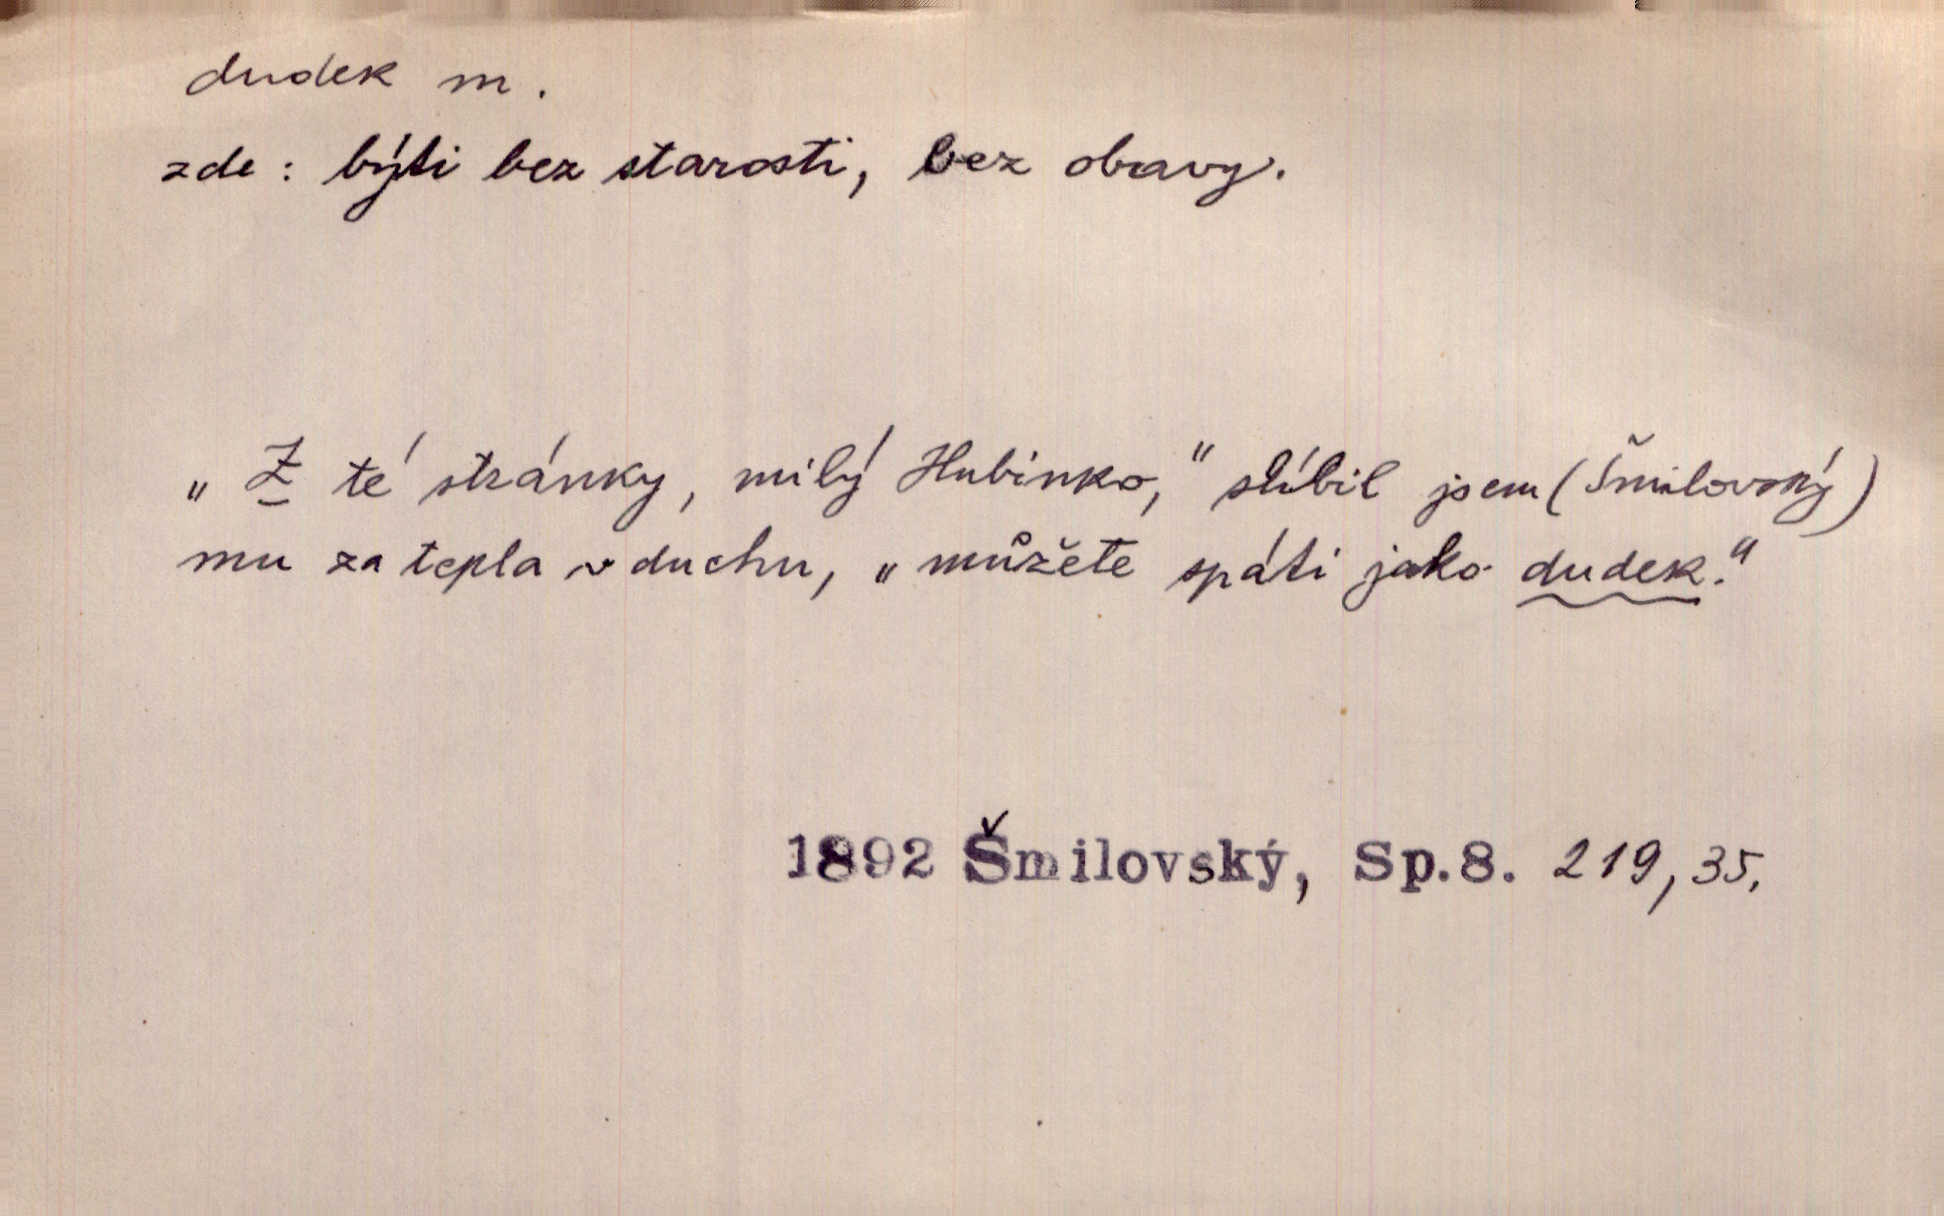 dudek m.
zde: býti bez starosti, bez obavy.
„Z té stránky, milý Hubinko," slíbil jsem (Šmilovský)
mu za tepla v duchu, „můžete spáti jako dudek."
1892 Šmilovský, Sp.8. 219,35.